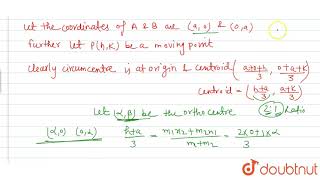 Let the coordinates of A & B are (a,0) & (0,a)
further let P(h,K) be a moving point
clearly circumcentre is at origin & centroid (a+0+h/3, 0+a+K/3)
centroid = (h+a/3, a+K/3)
Let (α,β) be the orthocentre 2:1 Ratio
(α,0) (0,α) h+a/3 = m₁x₂+m₂x₁/m₁+m₂ = 2×0+1×α/3
doubtnut